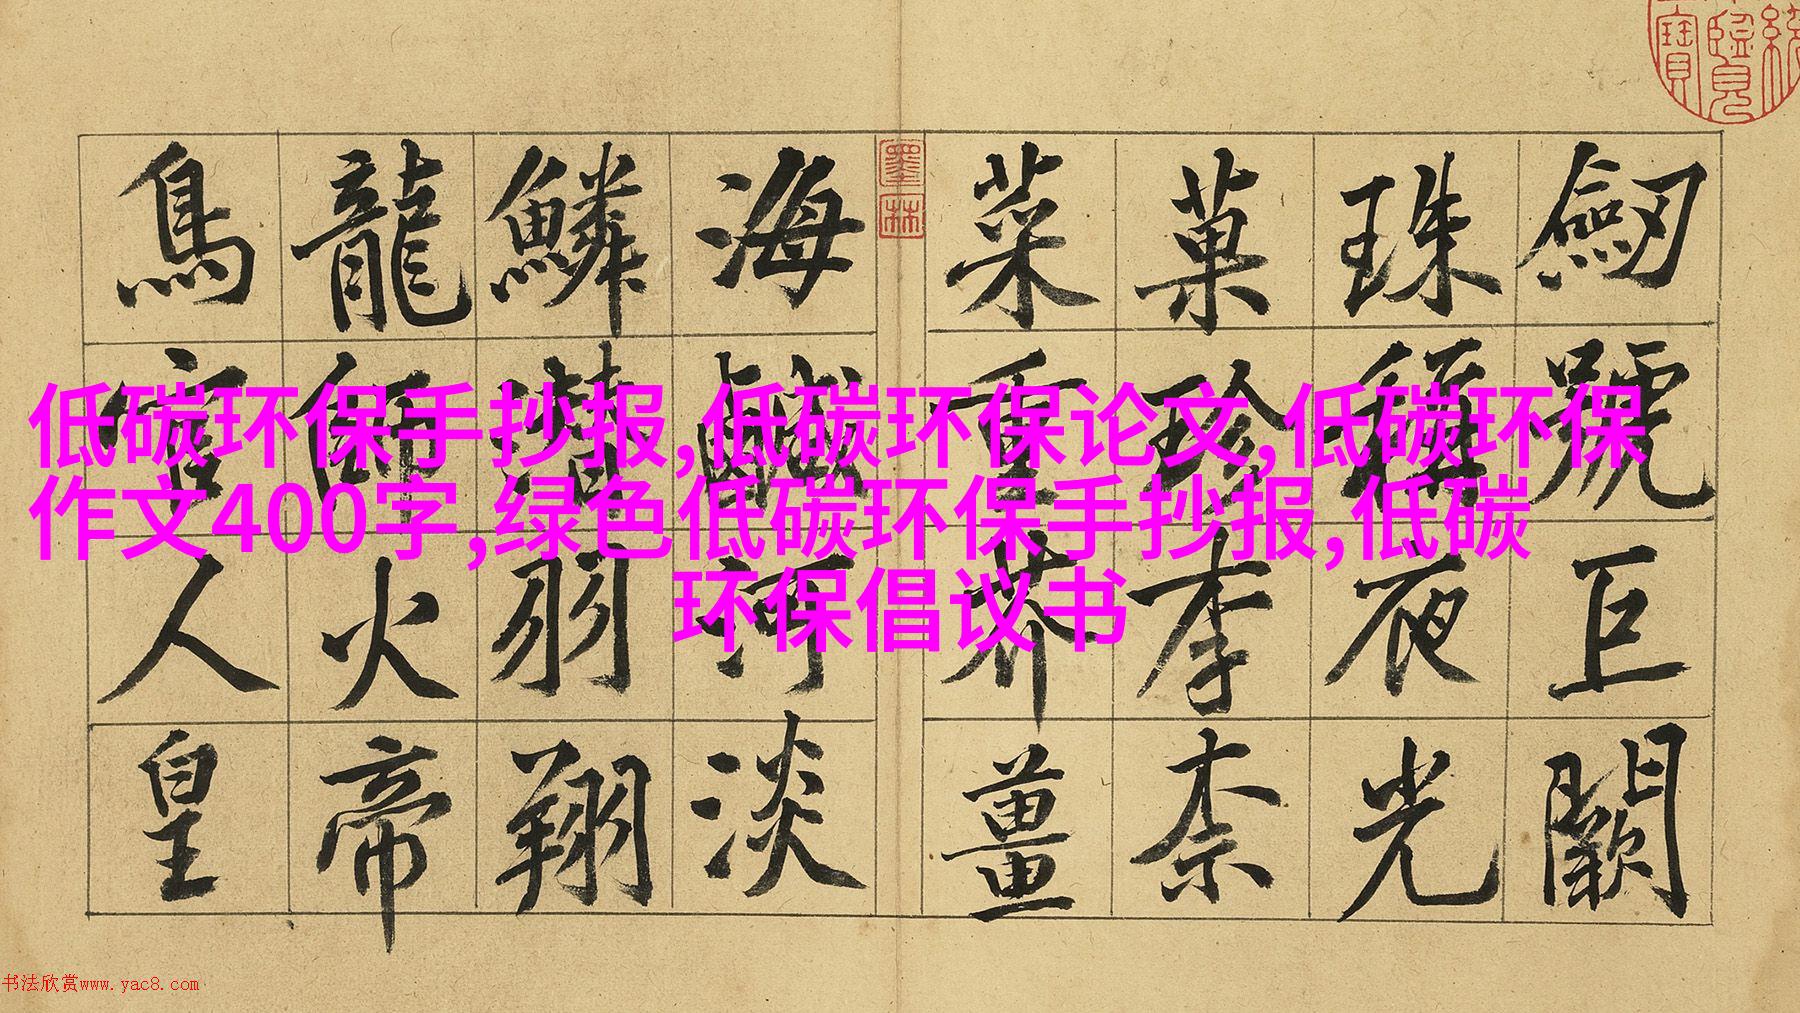 低碳环保手抄报,低碳环保论文,低碳环保
作文400字,绿色低碳环保手抄报,低碳
环保倡议书
劒號巨闕
珠稱夜光
菓珍李柰
菜重芥薑
海鹹河淡
鱗潛羽翔
龍師火帝
鳥官人皇
墨林
书法欣赏www.yac8.com